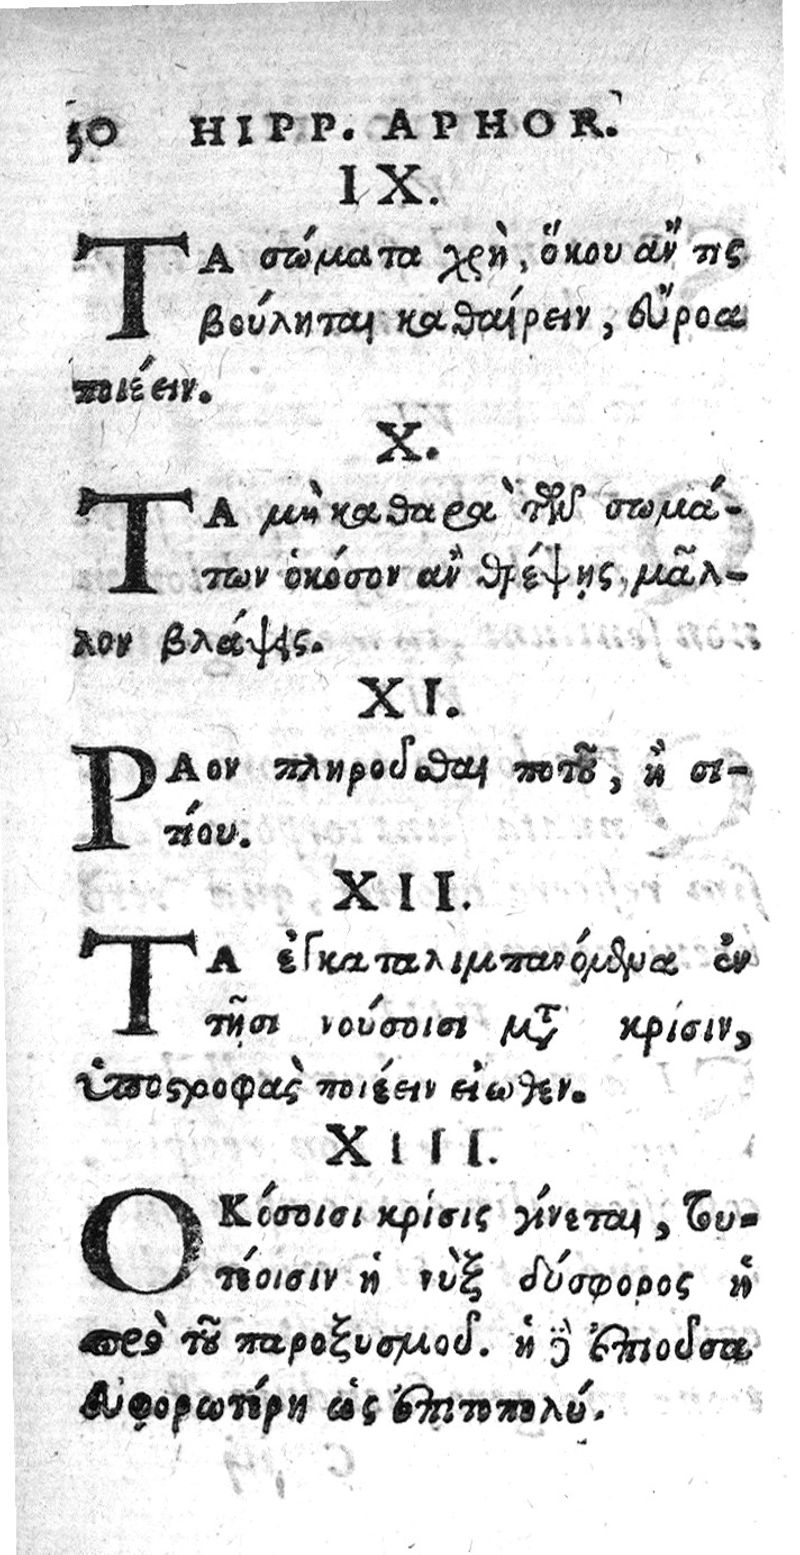 50 HIPP. APHOR.
IX.
ΤΑ σώματα χρὴ, ὅκου ἄν τις
βούληται καθαίρειν, εὔροα
ποιέειν.
X.
ΤΑ μὴ καθαρὰ τῶν σωμά-
των ὁκόσον ἂν θρέψῃς, μᾶλ-
λον βλάψεις.
XI.
ΡΑον πληροῦσθαι ποτοῦ, ἢ σι-
τίου.
XII.
ΤΑ ἐγκαταλιμπανόμενα ἐν
τῇσι νούσοισι μετὰ κρίσιν,
ὑποστροφὰς ποιέειν εἴωθεν.
XIII.
ΟΚόσοισι κρίσις γίνεται, του-
τέοισιν ἡ νὺξ δύσφορος ἡ
πρὸ τοῦ παροξυσμοῦ. ἡ δὲ ἐπιοῦσα
εὐφορωτέρη ὡς ἐπιτοπολύ.